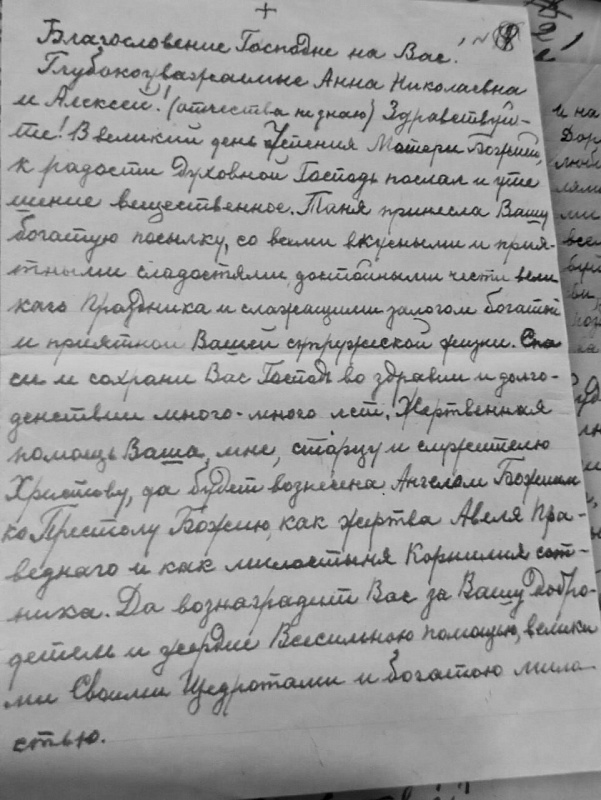 +
Благословение Господне на Вас!
Глубокоуважаемые Анна Николаевна
и Алексей! (отчества не знаю) Здравствуй-
те! В великий день Успения Матери Божией,
к радости духовной Господь послал и уте
шение вещественное. Таня принесла Вашу
богатую посылку, со всеми вкусными и прия-
тными сладостями, достойными чести вели
каго праздника и служащими залогом богатой
и приятной Вашей супружеской жизни. Спа
си и сохрани Вас Господь во здравии и долго-
денствии много-много лет. Жертвенная
помощь Ваша, мне, старцу и служителю
Христову, да будет вознесена Ангелом Божиим
ко Престолу Божию, как жертва Авеля Пра-
веднаго и как милостыня Корнилия сот-
ника. Да вознаградит Вас за Вашу добро-
детель и усердие Всесильною помощию, велики
ми Своими Щедротами и богатою мило
стью.
и на
Дор
люби
ми
все